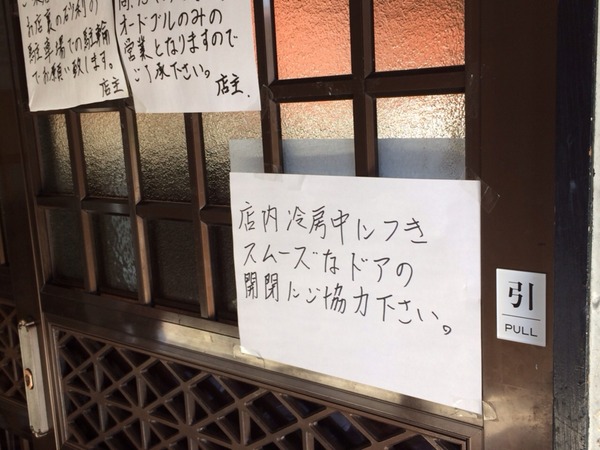 お店裏の砂利の
駐車場での駐輪
でお願い致します。
店主
オードブルのみの
営業となりますので
ご了承下さい。
店主.
店内冷房中につき
スムーズなドアの
開閉にご協力下さい。
引
PULL